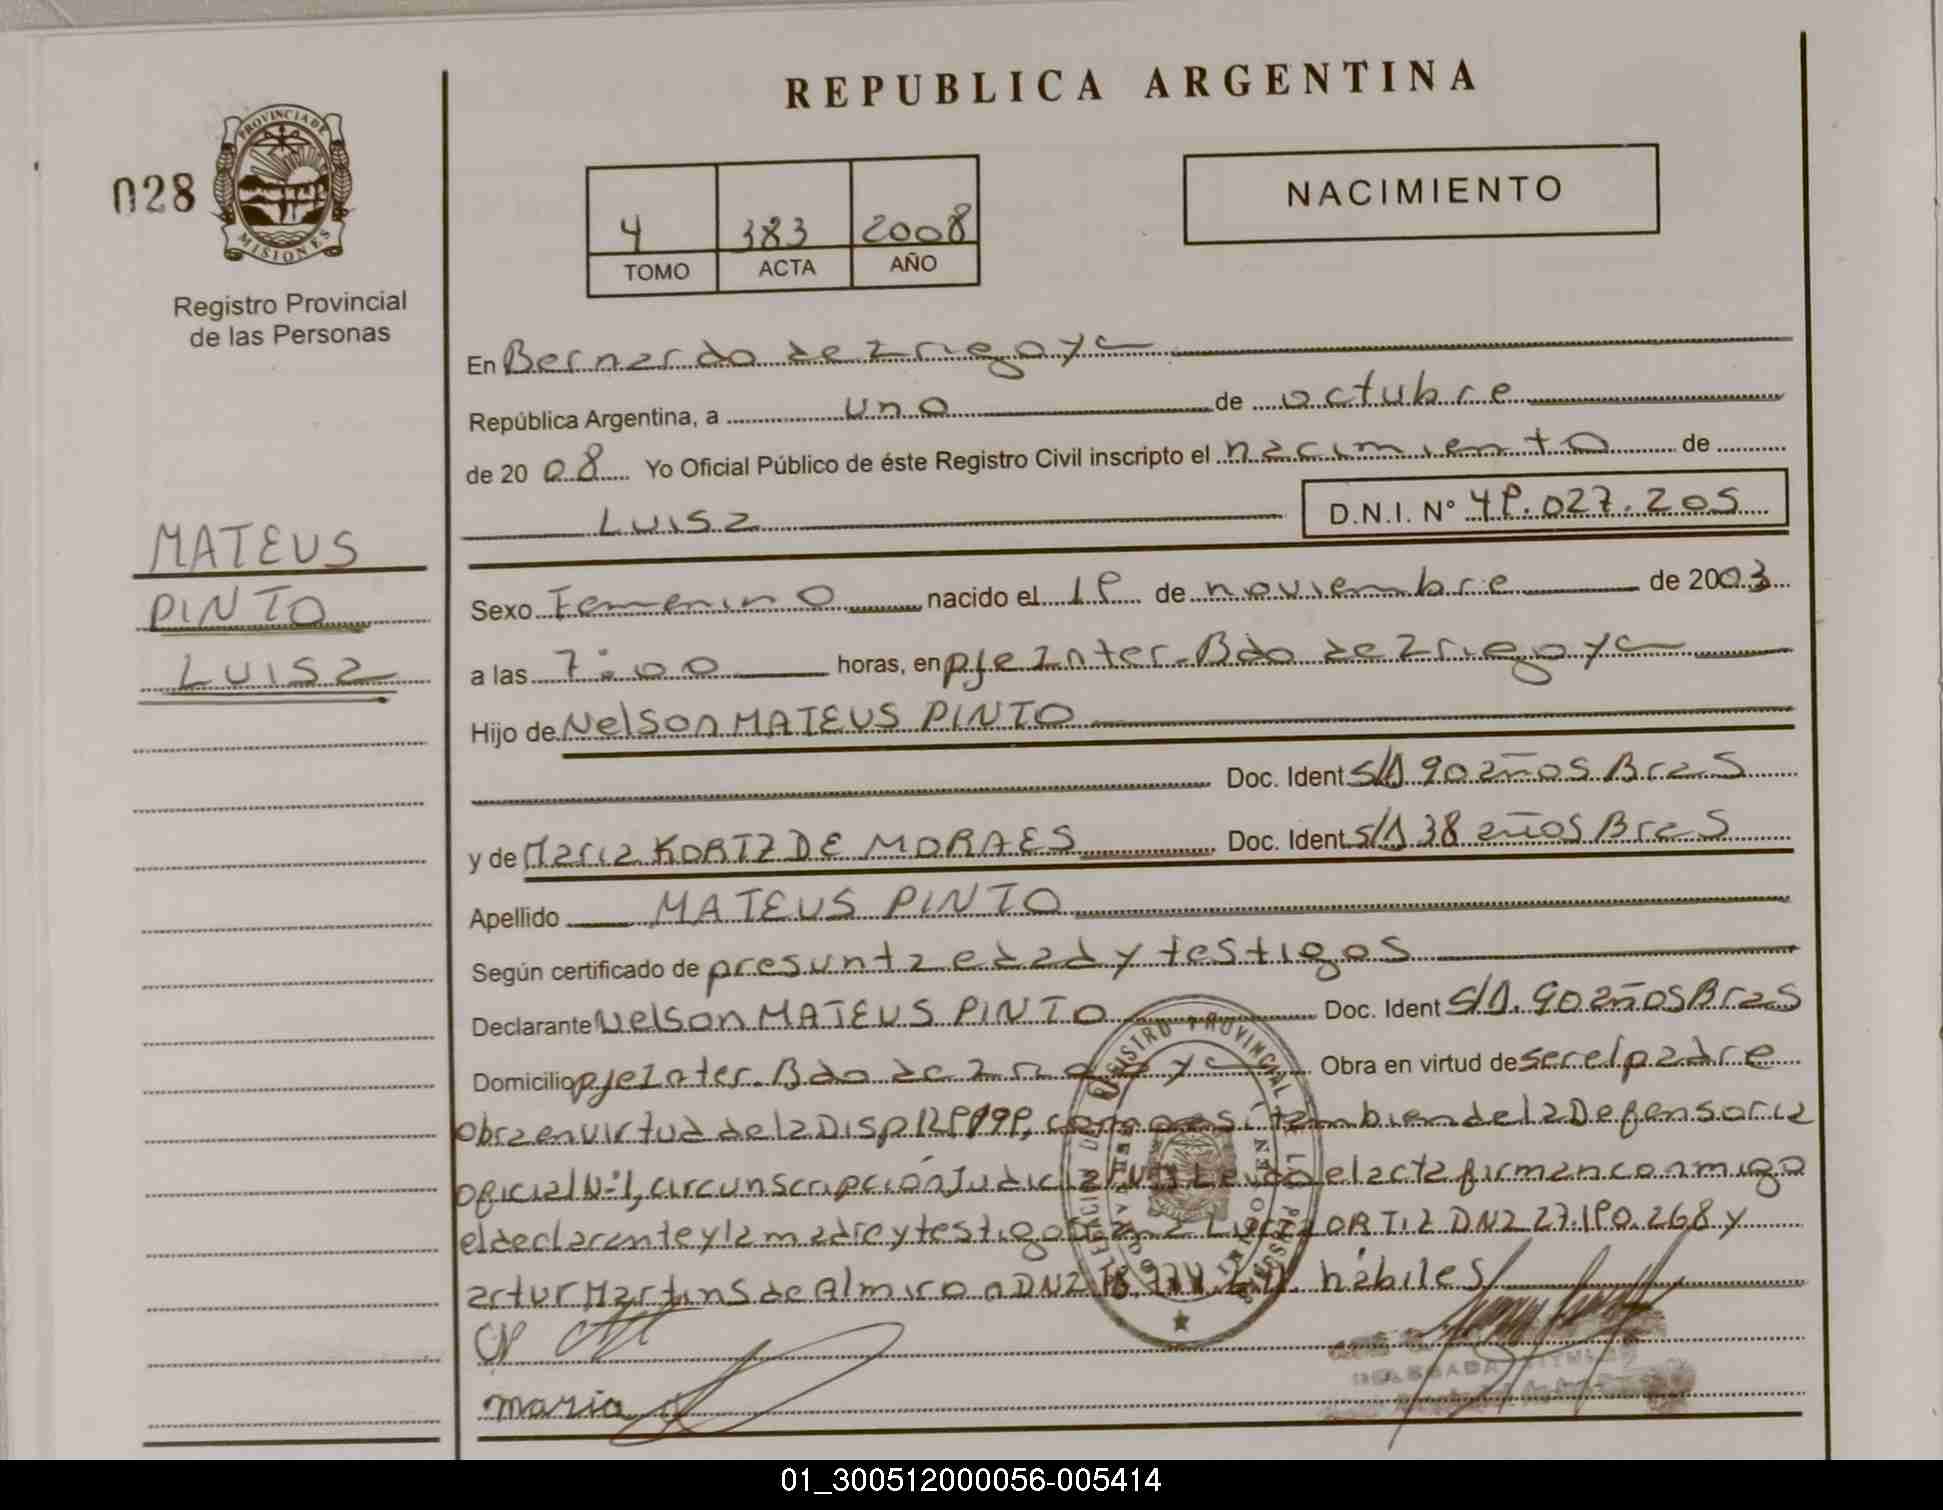 REPUBLICA ARGENTINA
028
PROVINCIA DE
MISIONES
Registro Provincial
de las Personas
NACIMIENTO
4 383 2008
TOMO ACTA AÑO
En Bernardo de Irigoyen
República Argentina, a uno de octubre
de 2008 Yo Oficial Público de éste Registro Civil inscripto el nacimiento de
Luisa D.N.I. N° 49.027.205
MATEUS
PINTO
Luisa
Sexo Femenino nacido el 19 de noviembre de 2003
a las 7:00 horas, en pje Inter. Bdo de Irigoyen
Hijo de Nelson MATEUS PINTO
Doc. Ident S/D 90 años Bras
y de Maria KORTZ DE MORAES Doc. Ident S/D 38 años Bras
Apellido MATEUS PINTO
Según certificado de presunta edad y testigos
Declarante Nelson MATEUS PINTO Doc. Ident S/D. 90 años Bras
Domicilio pje Inter. Bdo de Irigoyen Obra en virtud de ser el padre
Obra en virtud de la Disp 1299/99, como asi tambien de la Defensoria
oficial N°1, circunscripción Judicial Leido el acta firman conmigo
el declarante y la madre y testigos Lucia ORTIZ DNI 27.190.268 y
artur Martins de Almiron DNI hábiles
maria
REGISTRO PROVINCIAL DE LAS PERSONAS
01_300512000056-005414